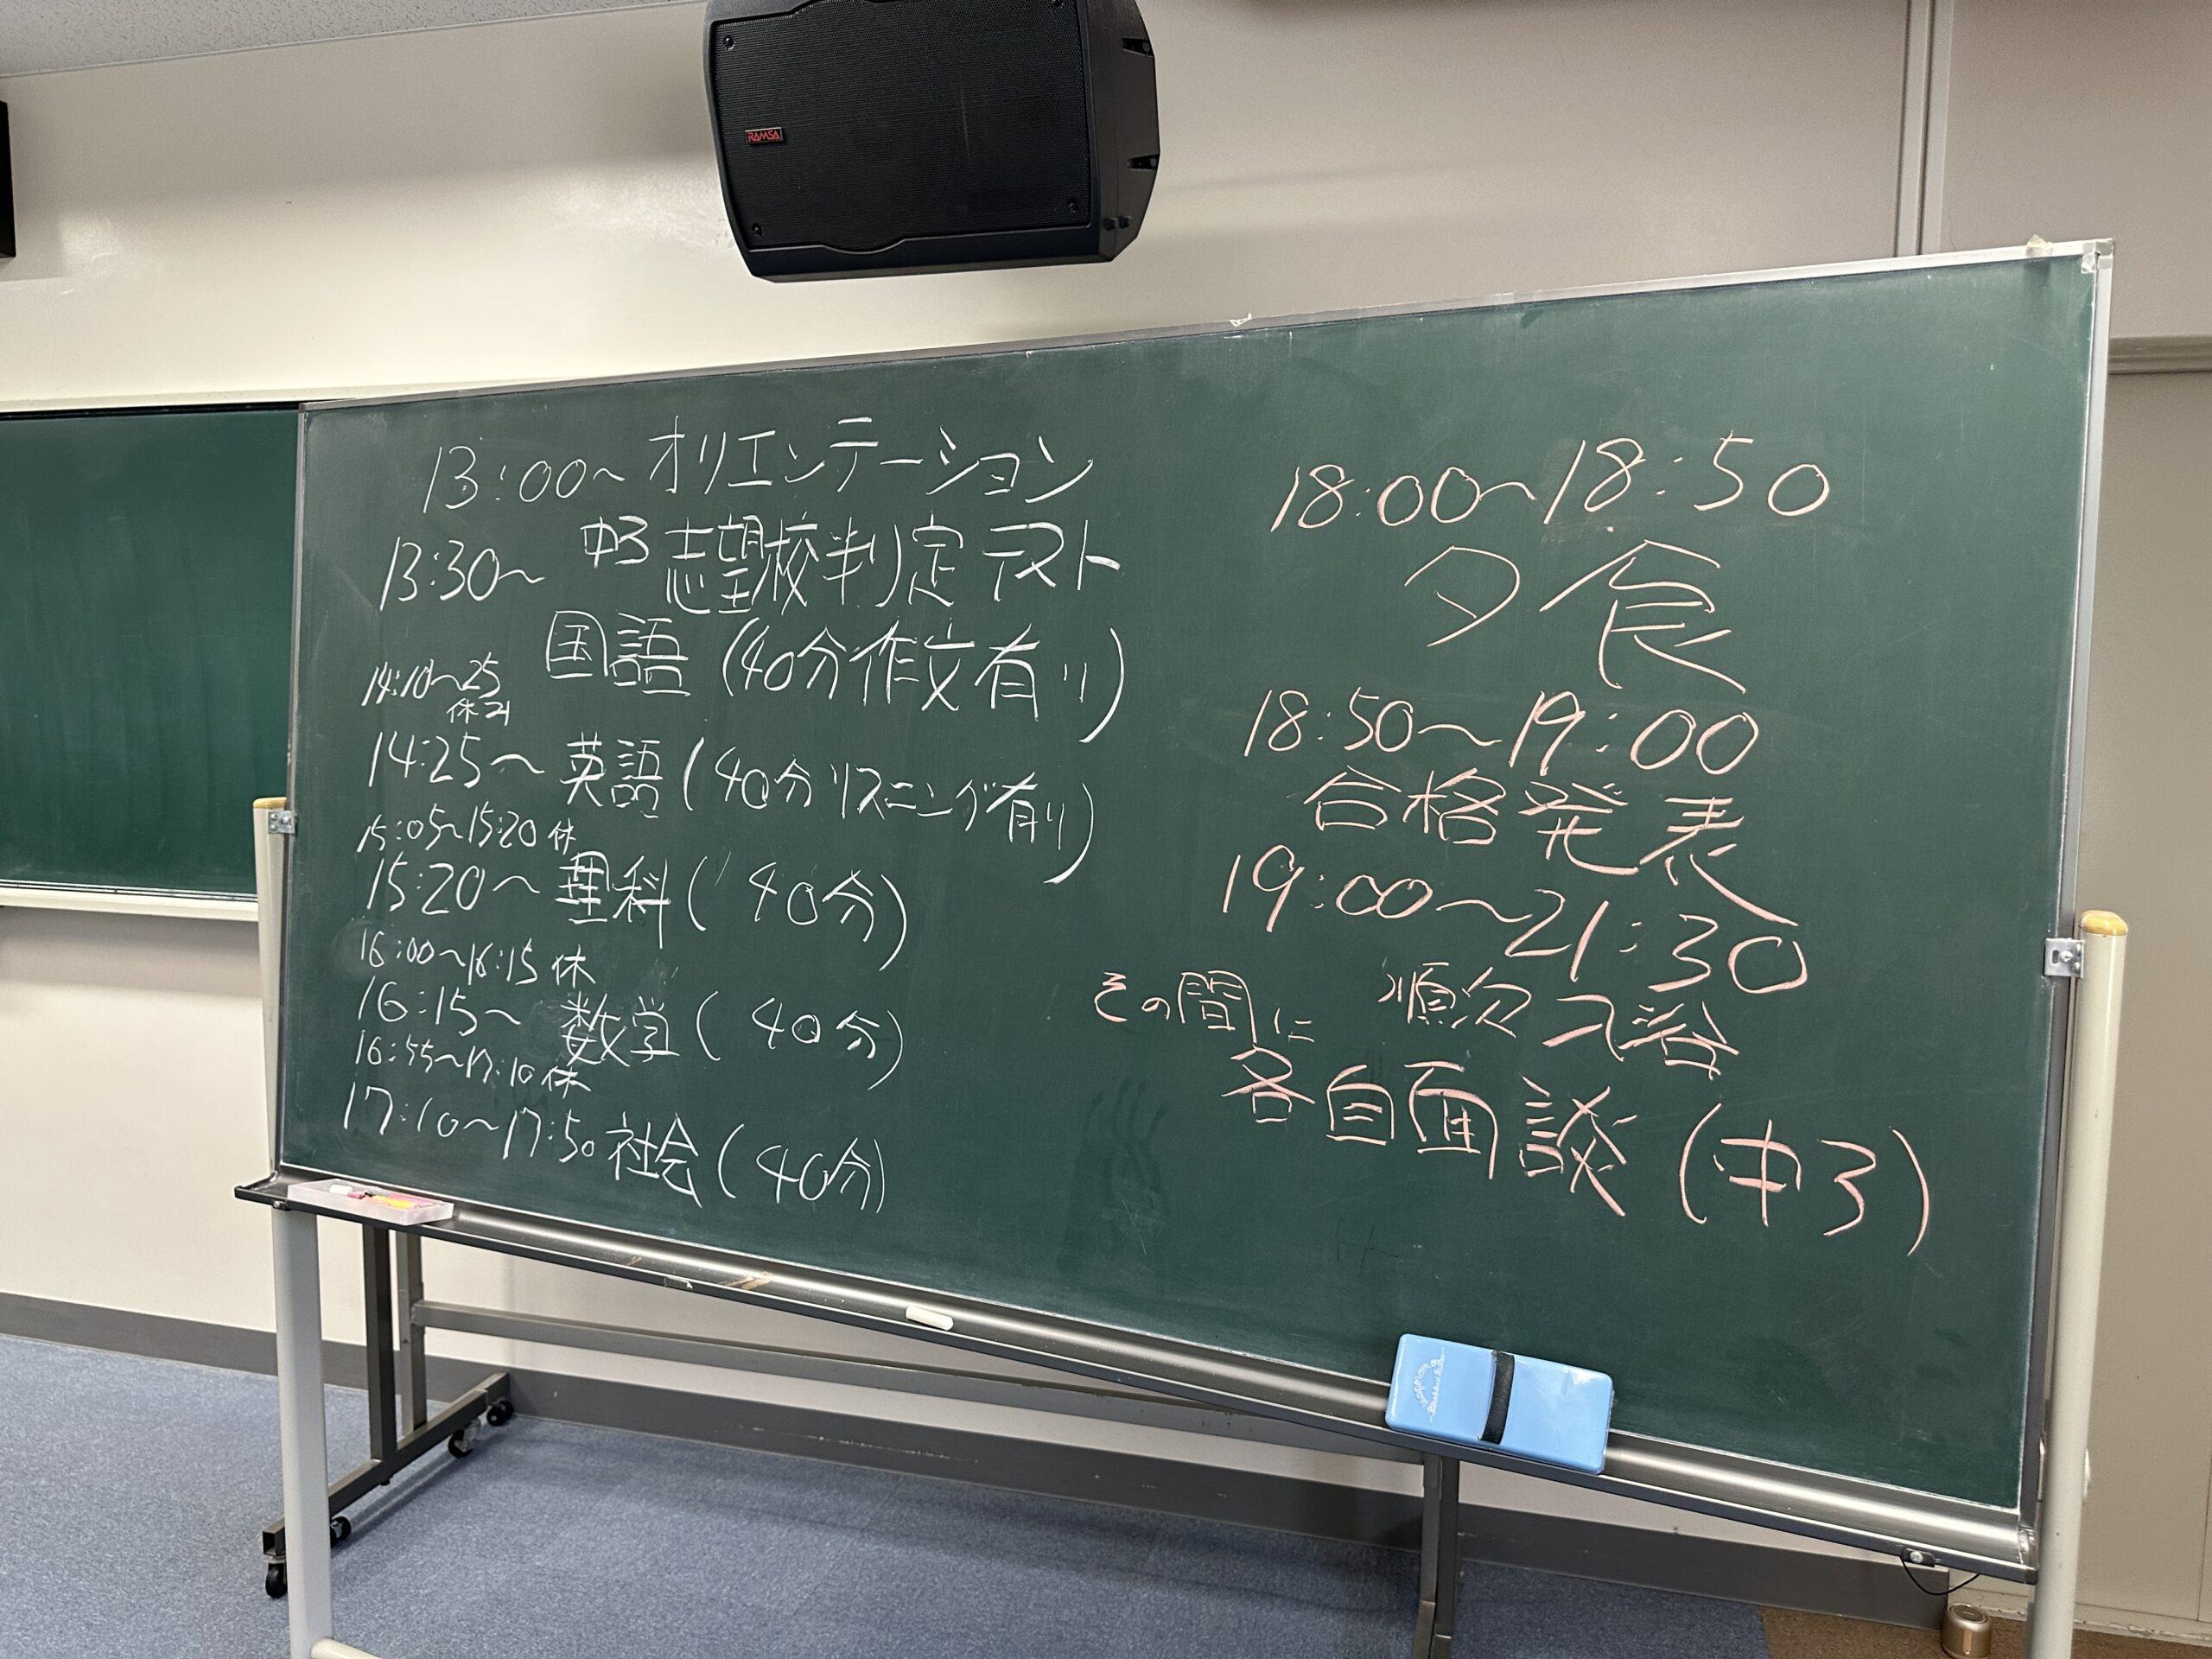 RAMSA
13:00～オリエンテーション
13:30～ 中3 志望校判定テスト
国語 (40分作文有り)
14:10～25
休み
14:25～ 英語 (40分 リスニング有り)
15:05～15:20 休
15:20～ 理科 (40分)
16:00～16:15 休
16:15～ 数学 (40分)
16:55～17:10 休
17:10～17:50 社会 (40分)
18:00～18:50
夕食
18:50～19:00
合格発表
19:00～21:30
その間に 順次入浴
各自面談 (中3)